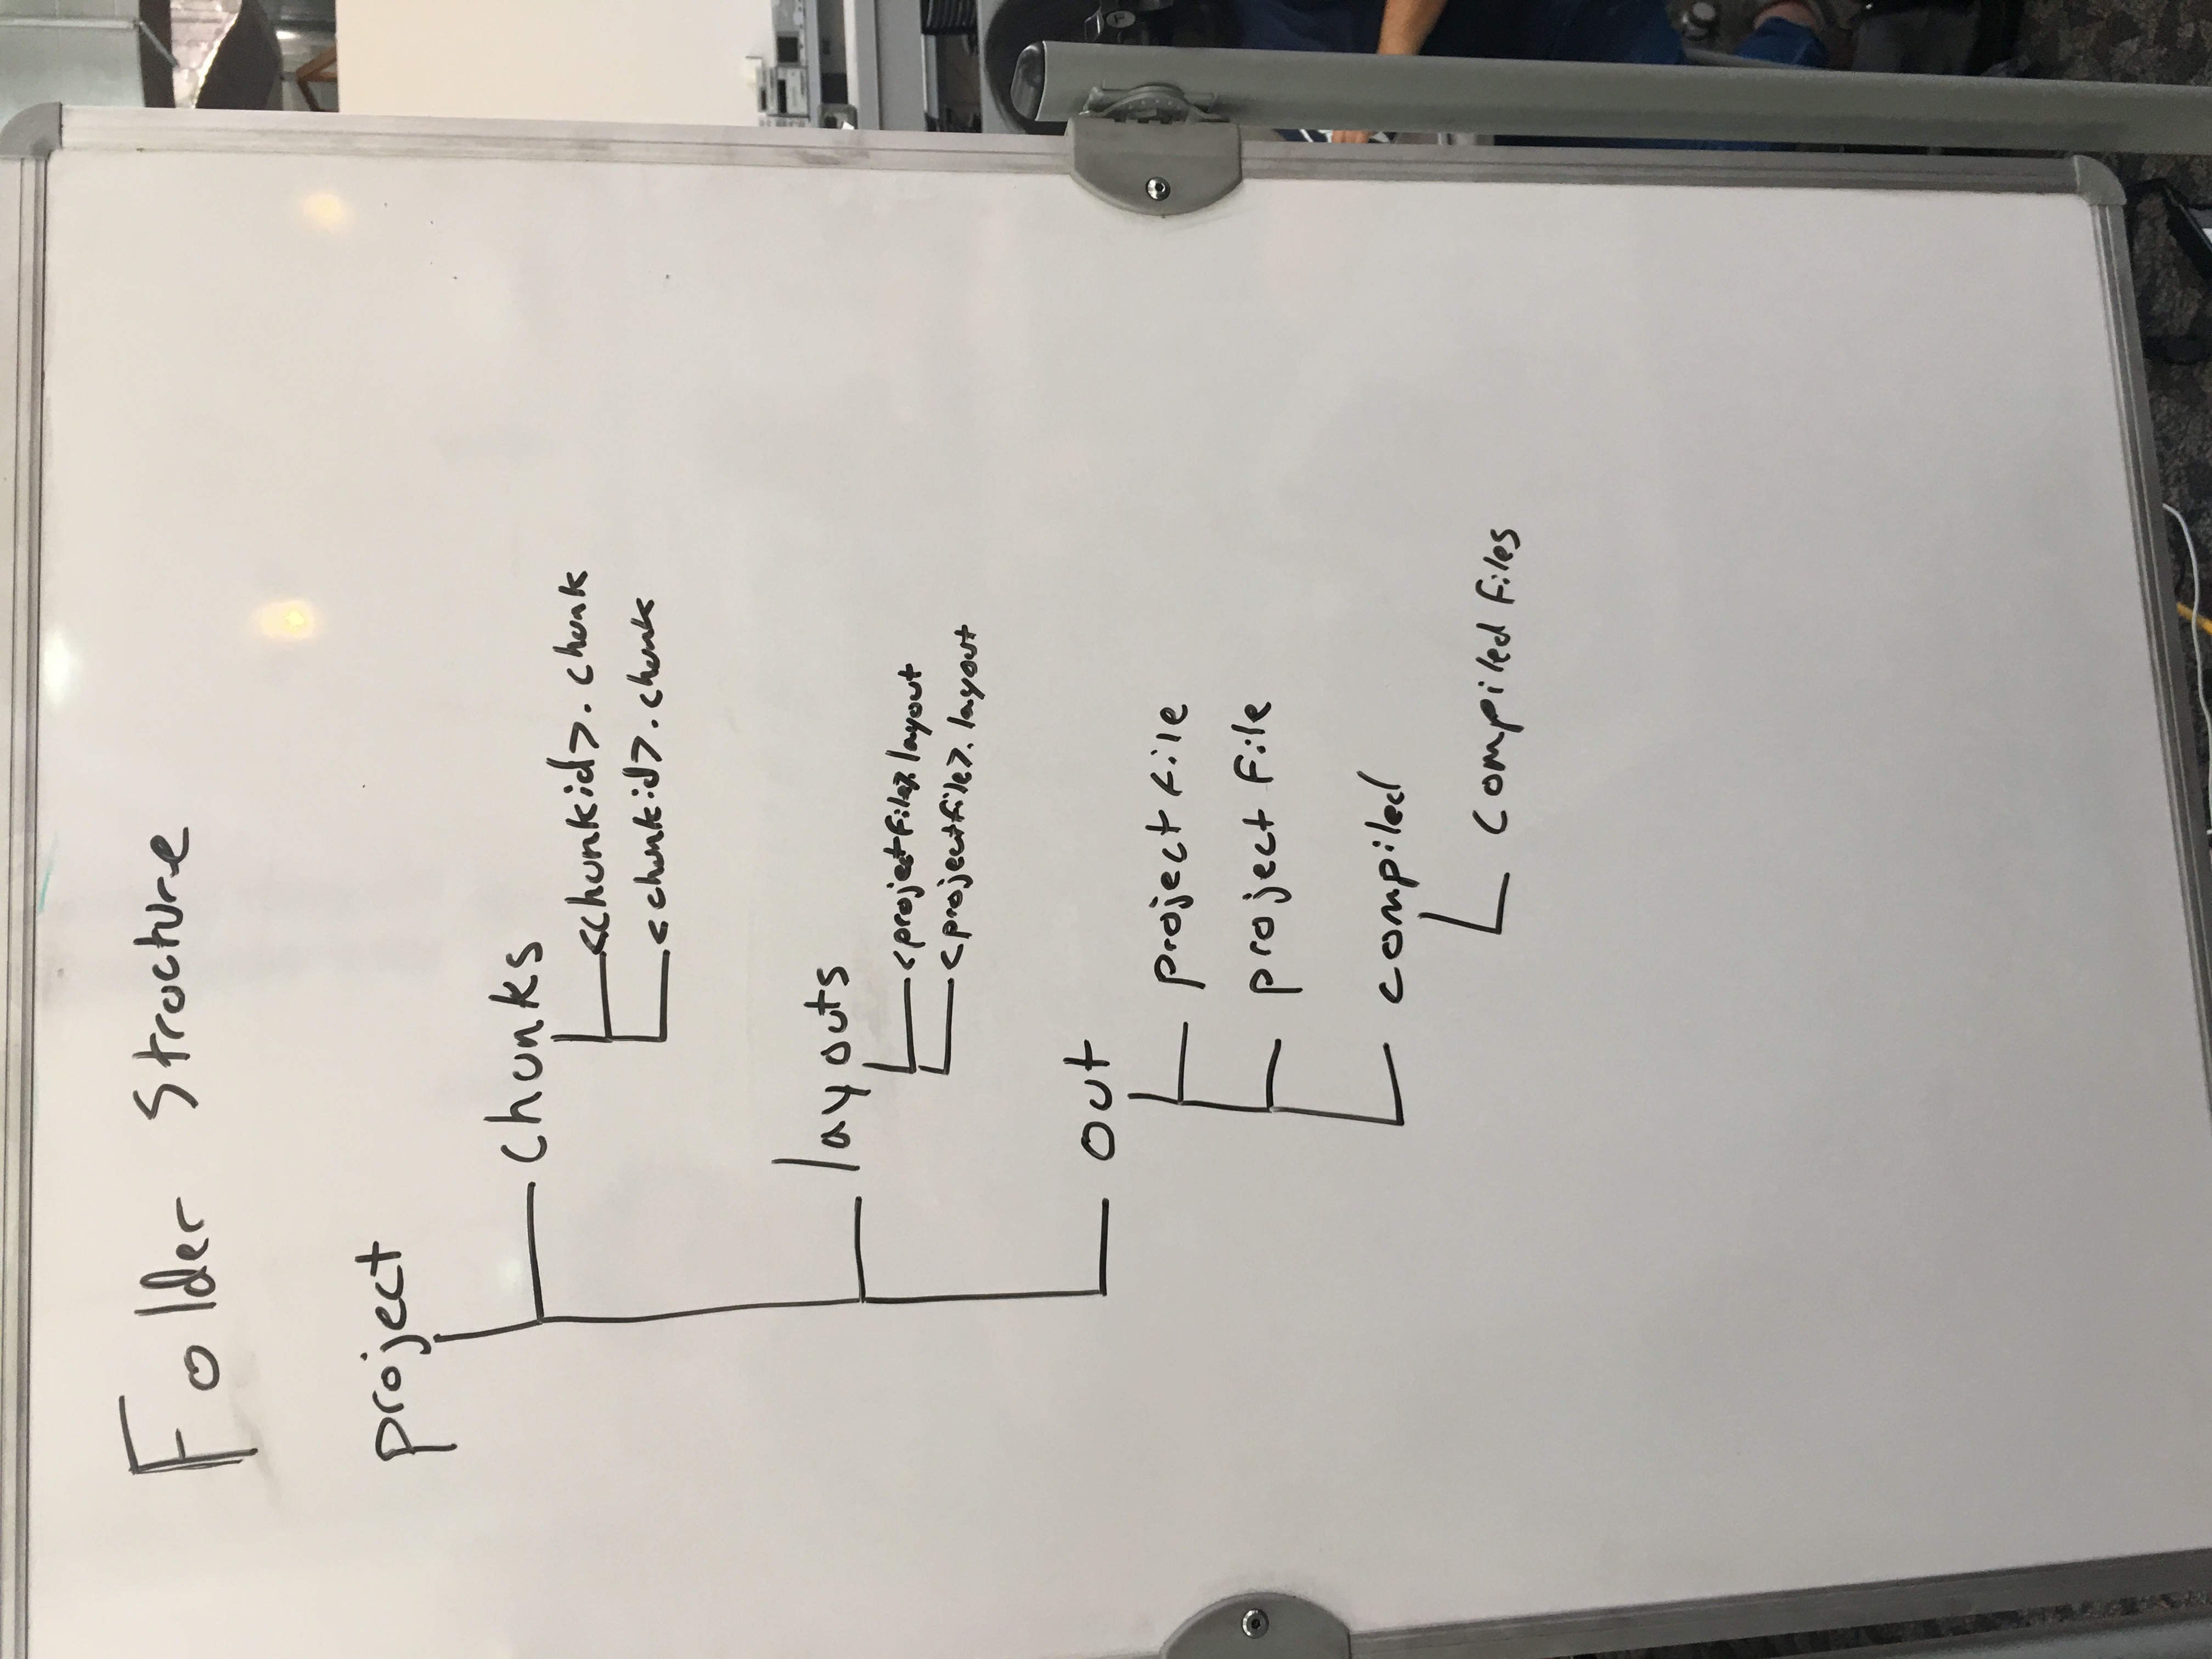 Folder Structure
project
chunks
<chunkid>.chunk
<chunkid>.chunk
layouts
<projectfile>.layout
<projectfile>.layout
out
project file
project file
compiled
compiled files